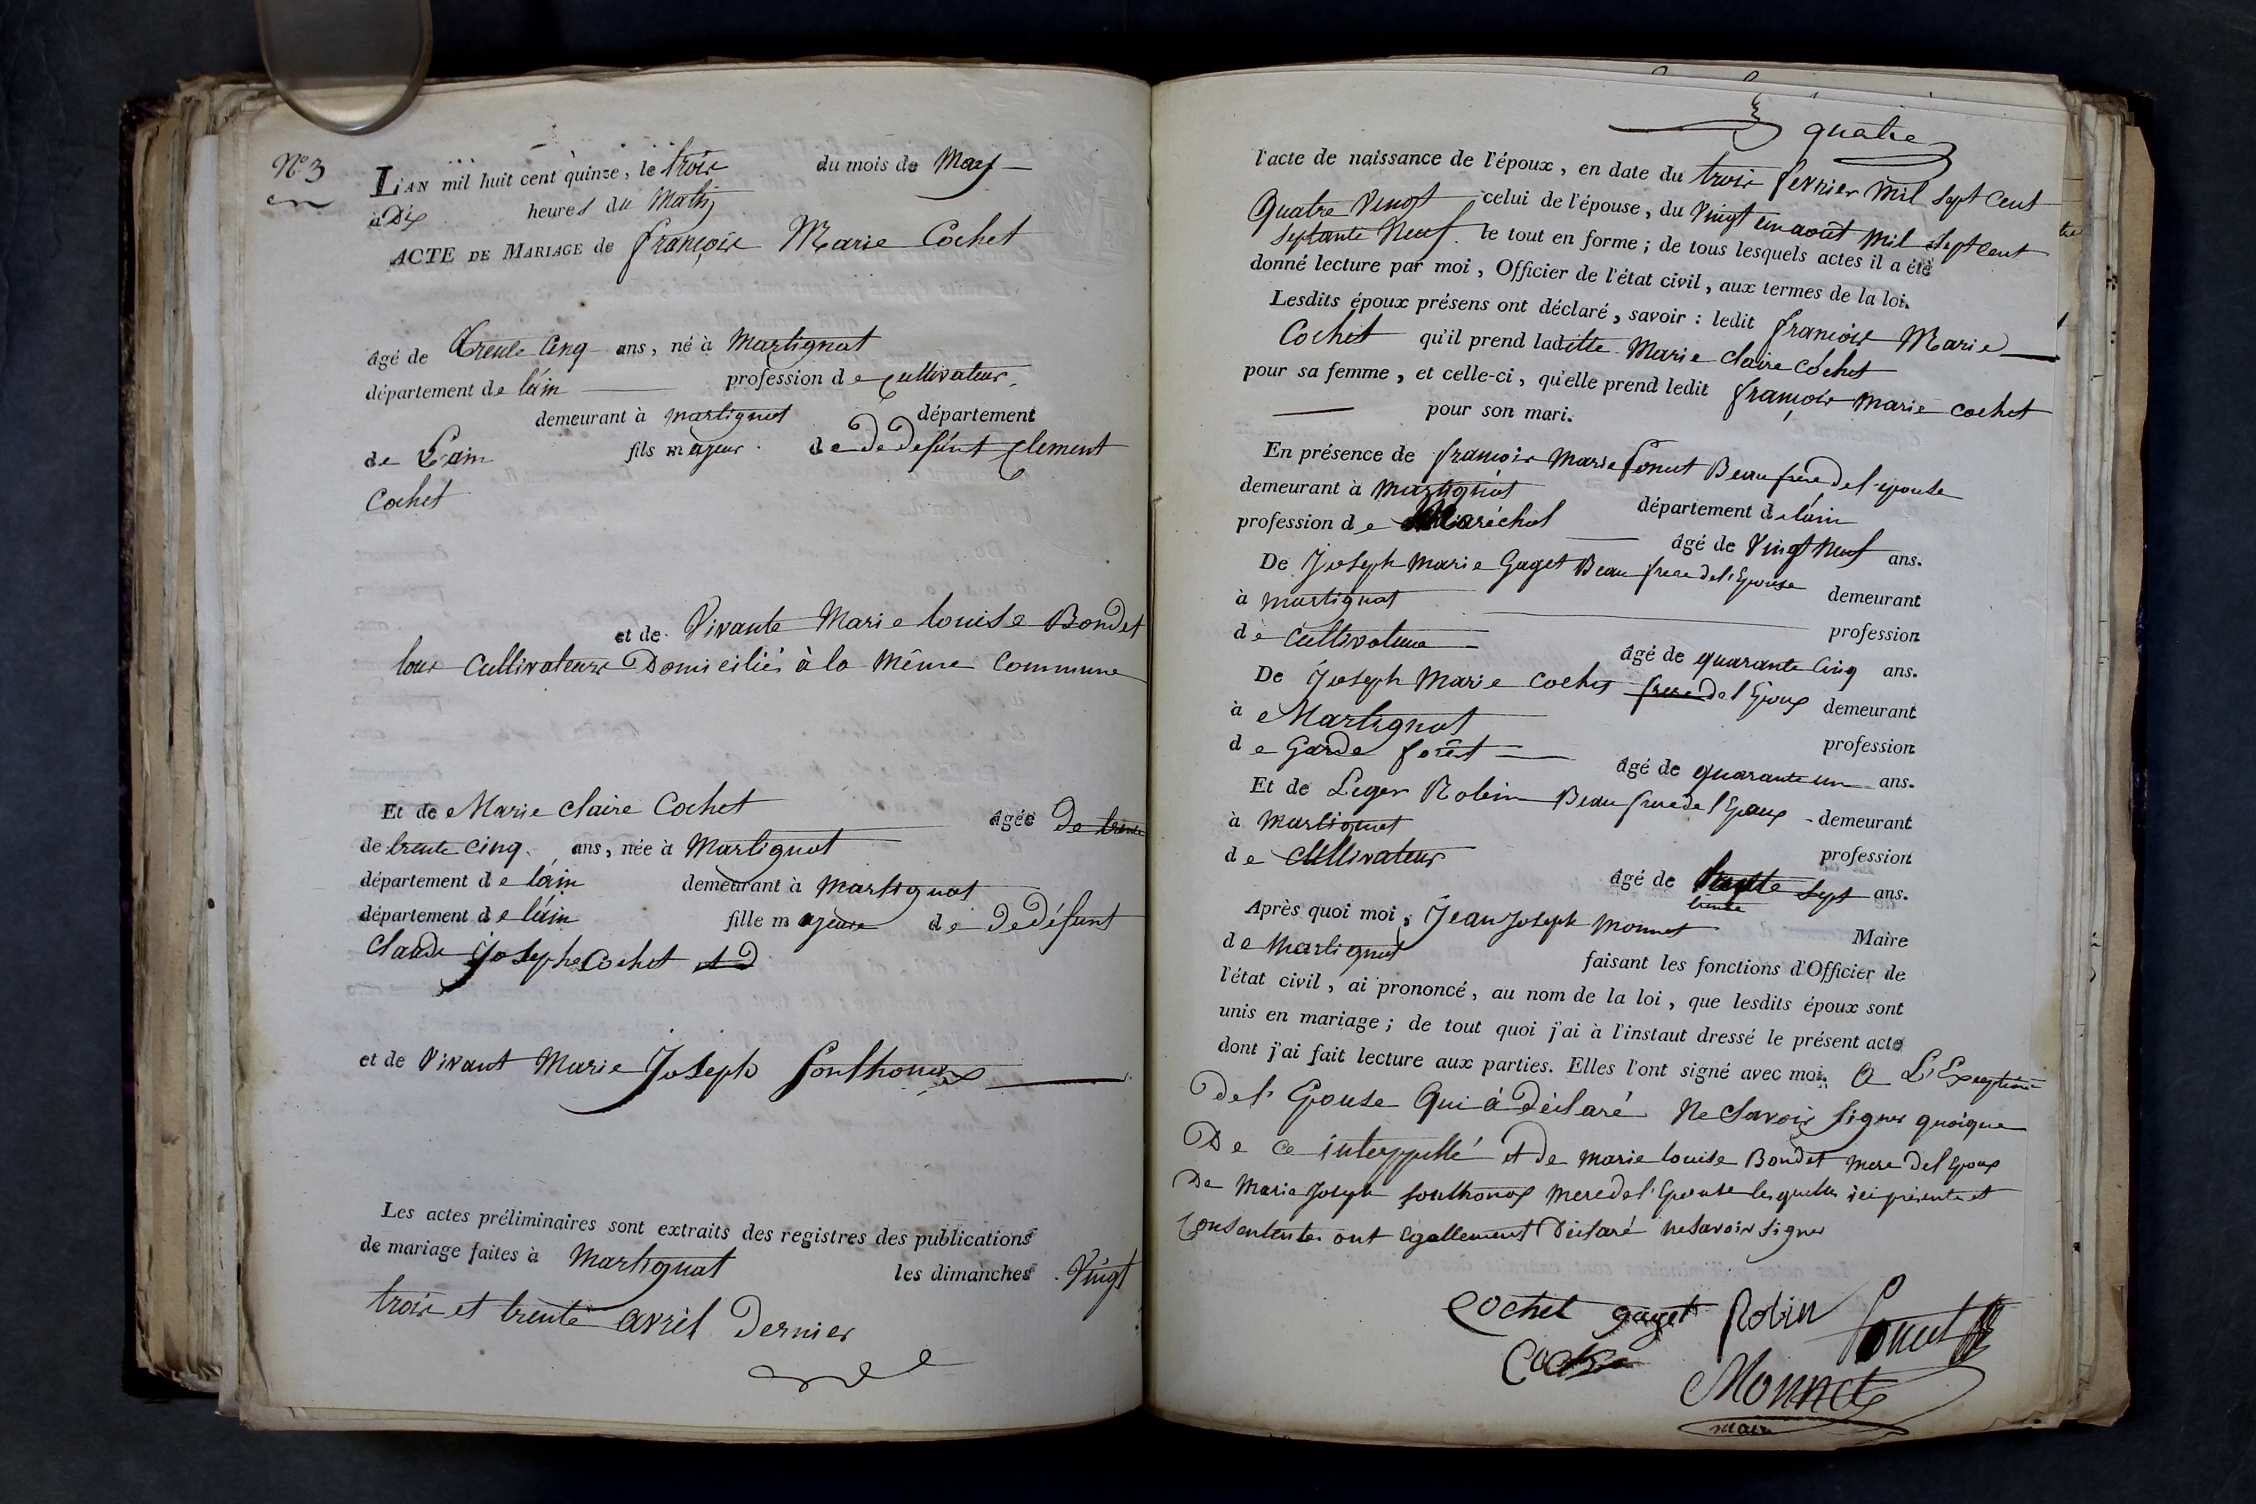 N.° 3
L'AN mil huit cent quinze, le trois du mois de May
à Dix heures du Matin
ACTE DE MARIAGE de françois Marie Cochet
âgé de trente Cinq ans, né à Martignat
département de l'ain profession de Cultivateur
demeurant à Martignat département
de L'ain fils majeur de De défunt Clement
Cochet
et de Vivante Marie louise Bondet
tous Cultivateurs Domiciliés à la Même Commune
Et de Marie Claire Cochet âgée De trente
de trente cinq ans, née à Martignat
département de l'ain demeurant à Martignat
département de l'ain fille majeure de De défunt
Claude Joseph Cochet et D
et de Vivant Marie Joseph Gonthoux
Les actes préliminaires sont extraits des registres des publications
de mariage faites à Martignat les dimanches Vingt
trois et trente avril Dernier
quatre
l'acte de naissance de l'époux, en date du trois fevrier Mil Sept Cent
Quatre Vingt celui de l'épouse, du Vingt un août Mil Sept Cent
Septante Neuf le tout en forme; de tous lesquels actes il a été
donné lecture par moi, Officier de l'état civil, aux termes de la loi.
Lesdits époux présens ont déclaré, savoir: ledit françois Marie
Cochet qu'il prend laditte Marie Claire Cochet
pour sa femme, et celle-ci, qu'elle prend ledit françois Marie Cochet
pour son mari.
En présence de françois Marie Beaufrère de l'epouse
demeurant à Martignat département de l'ain
profession de Maréchal âgé de Vingt Neuf ans.
De Joseph Marie Gaget Beau frere de l'Epouse demeurant
à Martignat profession
de Cultivateur âgé de quarante Cinq ans.
De Joseph Marie Cochet frere de l'Epoux demeurant
à Martignat profession
de Garde forêt âgé de quarante un ans.
Et de Leger Robin Beau frere de l'Epoux demeurant
à Martignat profession
de Cultivateur âgé de trente Sept ans.
trente
Après quoi moi, Jean Joseph Monnet Maire
de Martignat faisant les fonctions d'Officier de
l'état civil, ai prononcé, au nom de la loi, que lesdits époux sont
unis en mariage; de tout quoi j'ai à l'instaut dressé le présent acte
dont j'ai fait lecture aux parties. Elles l'ont signé avec moi. A L'Exception
De l'Epouse Qui à Déclaré Ne Savoir Signer quoique
De ce interppellé et De Marie louise Bondet mere De l'Epoux
De Marie Joseph Gonthoux mere de l'Epouse lesquelles ici présente et
Consentente ont Egallement Déclaré ne Savoir Signer
Cochet gaget Robin
Cochet
Monnet
maire